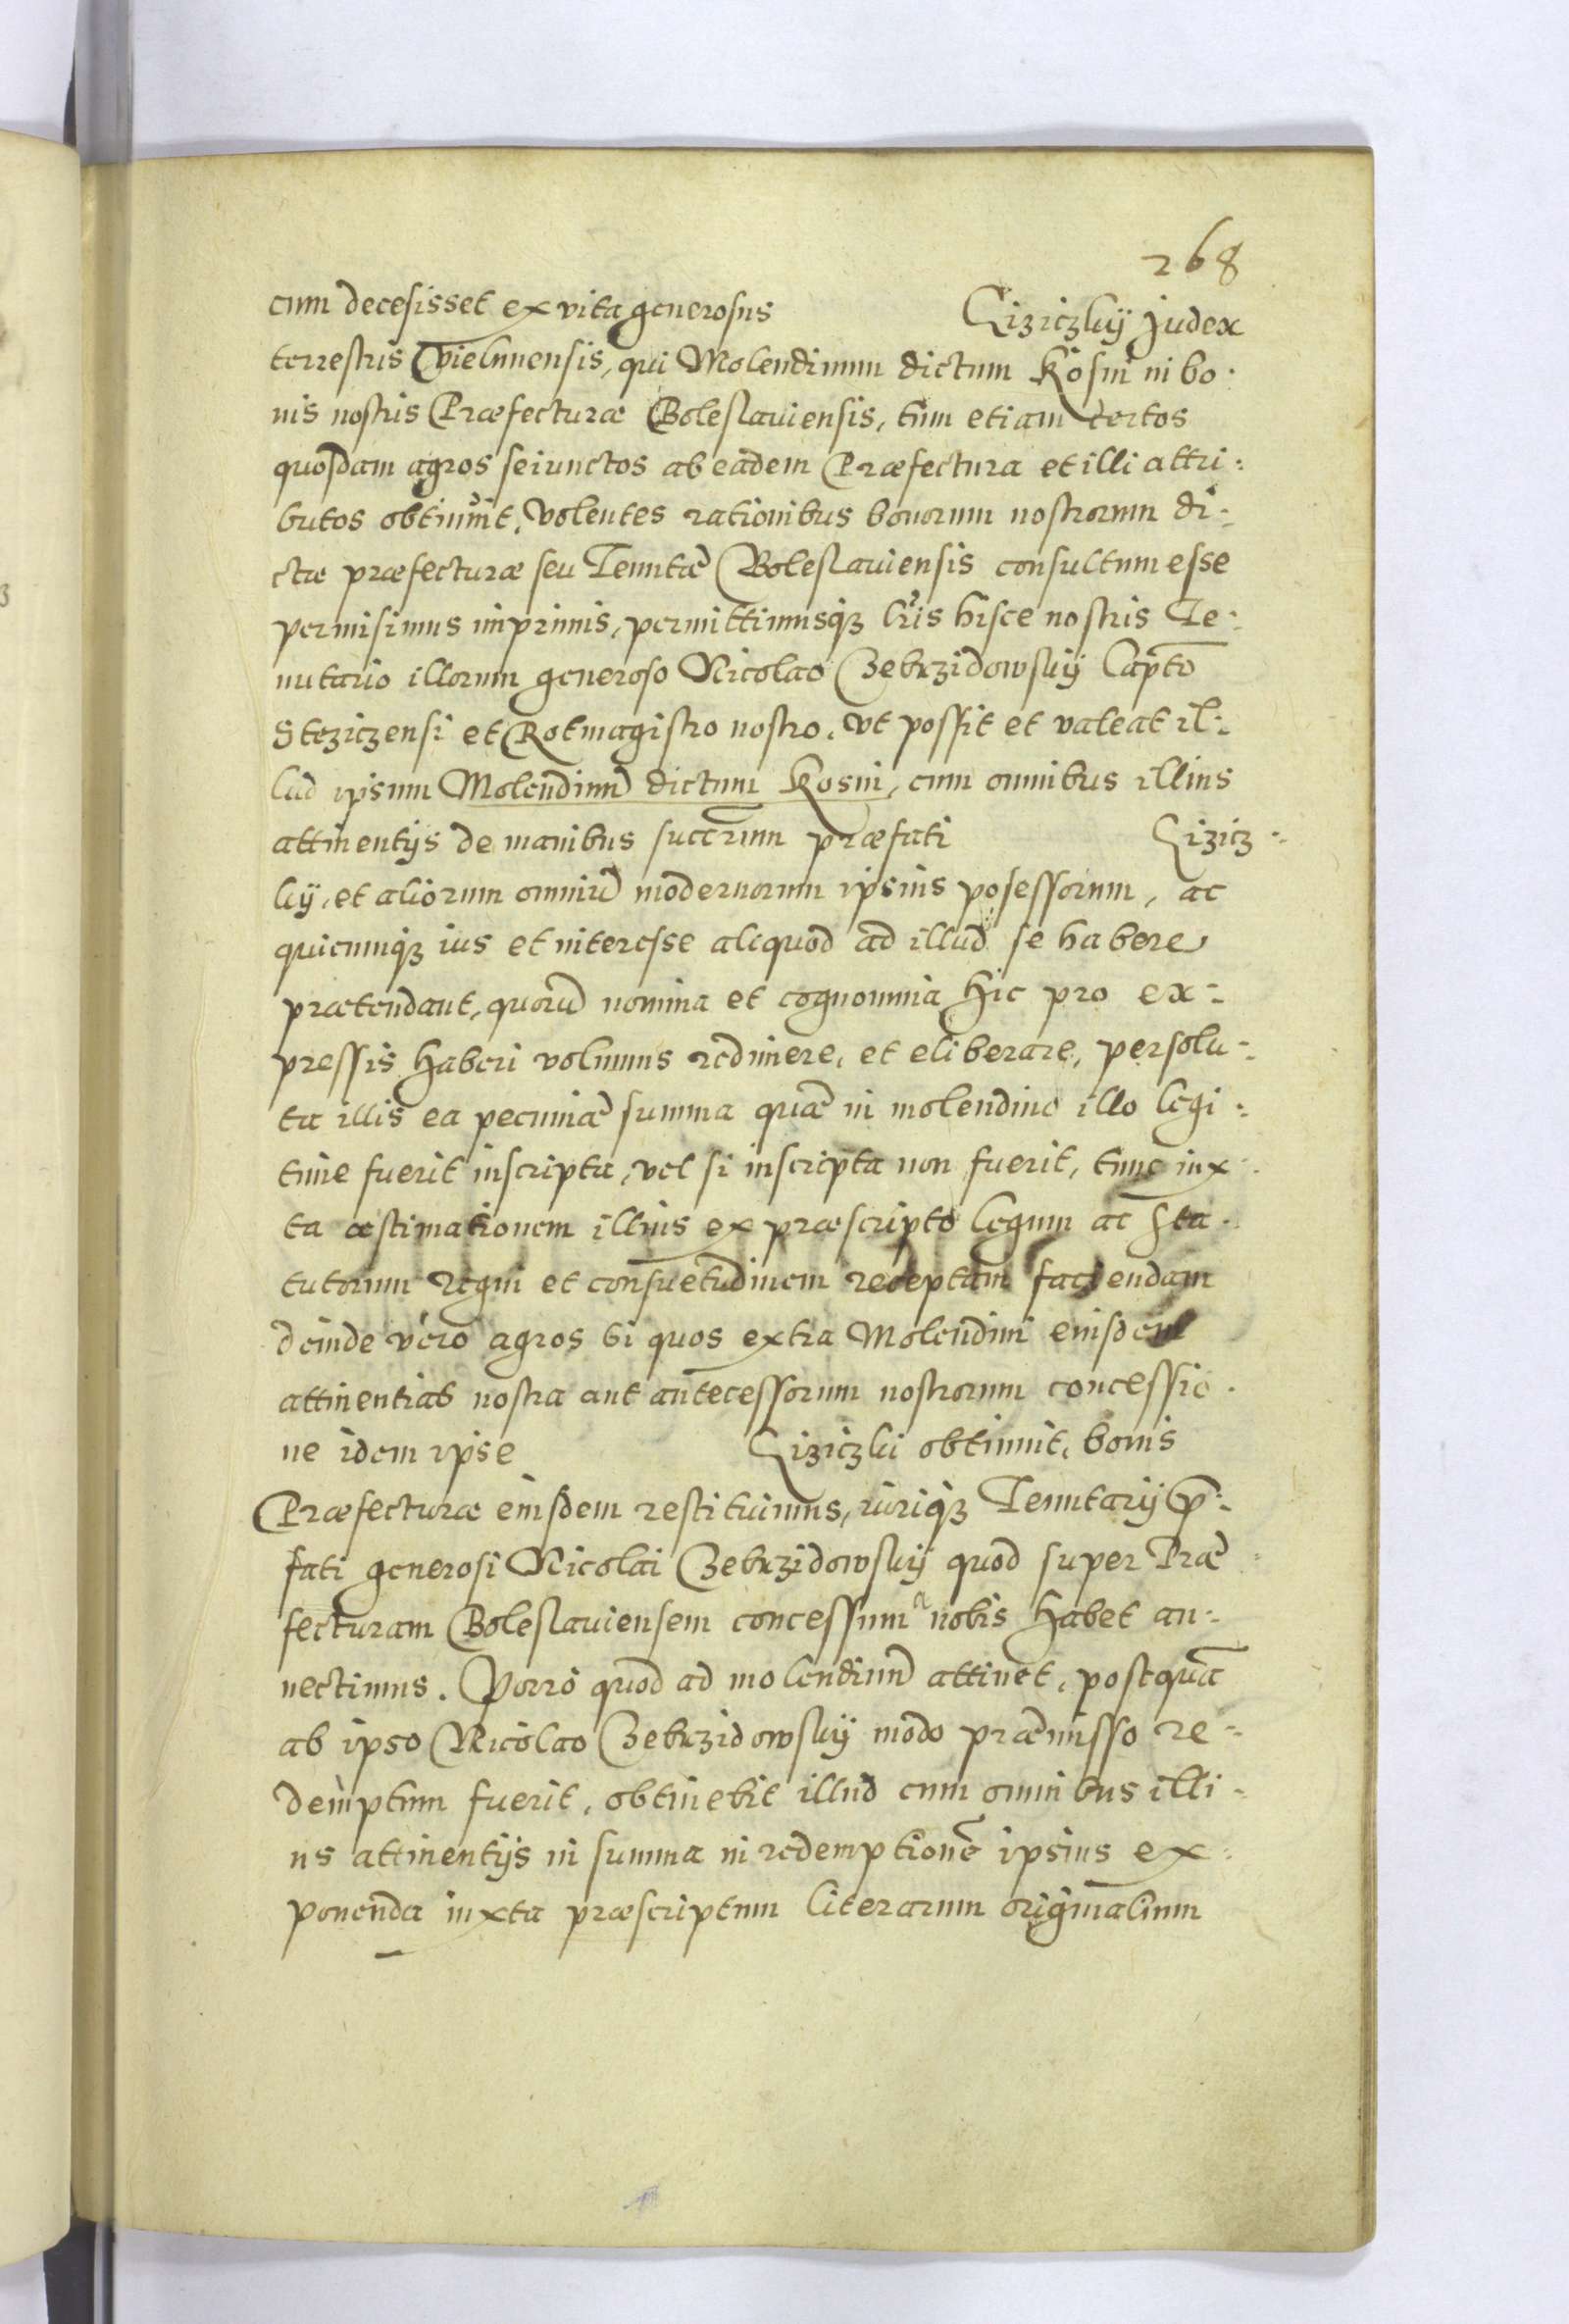 268
cum decesisset ex vita generosus Giziczkij Judex
terrestris Vielunensis, qui Molendinum dictum Kosni in bo-
nis nostris Præfecturæ Boleslauiensis, tum etiam certos
quosdam agros seiunctos ab eadem Præfectura et illi attri:
butos obtinuit, Volentes rationibus bonorum nostrorum di:
ctæ præfecturæ seu Tenutæ Boleslauiensis consultum esse
permisimus inprimis, permittimusq3 lr̃is hisce nostris Te:
nutario illorum generoso Nicolao Zebrzidowskij Capto
Steziczensi et Rotmagistro nostro, vt possit et valeat il:
lud ipsum Molendinũ dictum Kosni, cum omnibus illius
attinentijs de manibus succrum præfati Gizicz:
kij, et aliorum omniũ modernorum ipsius posessorum, ac
quicunq3 ius et interesse aliquod ad illud se habere
prætendant, quorũ nomina et cognomina hic pro ex:
pressis haberi volumus redimere, et eliberare, persolu:
ta illis ea pecuniæ summa quæ in molendino illo legi:
time fuerit inscripta, vel si inscripta non fuerit, tunc iux:
ta æstimationem illius ex præscripto legum ac sta:
tutorum regni et consuetudinem receptam faciendam
deinde vero agros si quos extra Molendini eiusdem
attinentias nostra aut antecessorum nostrorum concessio:
ne idem ipse Giziczki obtinuit, bonis
Præfecturæ eiusdem restituimus, iuriq3 Tenutarij p̃:
fati generosi Nicolai Zebrzidowskij quod super Præ:
fecturam Boleslauiensem concessum a nobis habet an:
nectimus. Porro quod ad molendinũ attinet, postquã
ab ipso Nicolao Zebrzidowskij modo præmisso re:
demptum fuerit, obtinebit illud cum omnibus illi:
us attinentijs in summa in redemptionẽ ipsius ex:
ponenda iuxta præscriptum literarum originalium